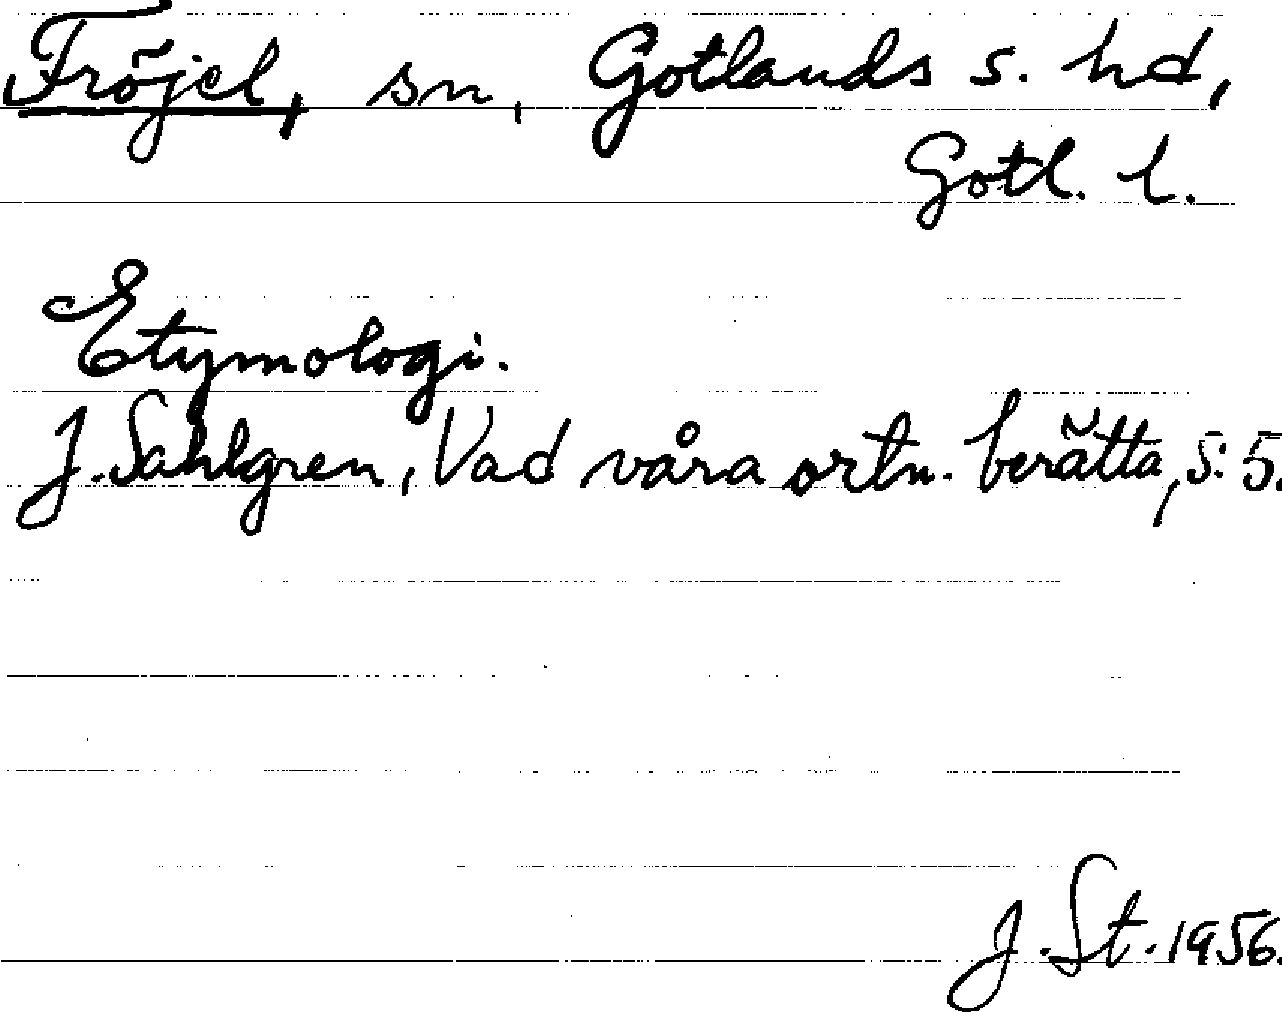 Fröjel, sn, Gotlands s. hd,
Gotl. l.
Etymologi.
J. Sahlgren, Vad våra ortn. berätta, s: 5.
J. St. 1956.